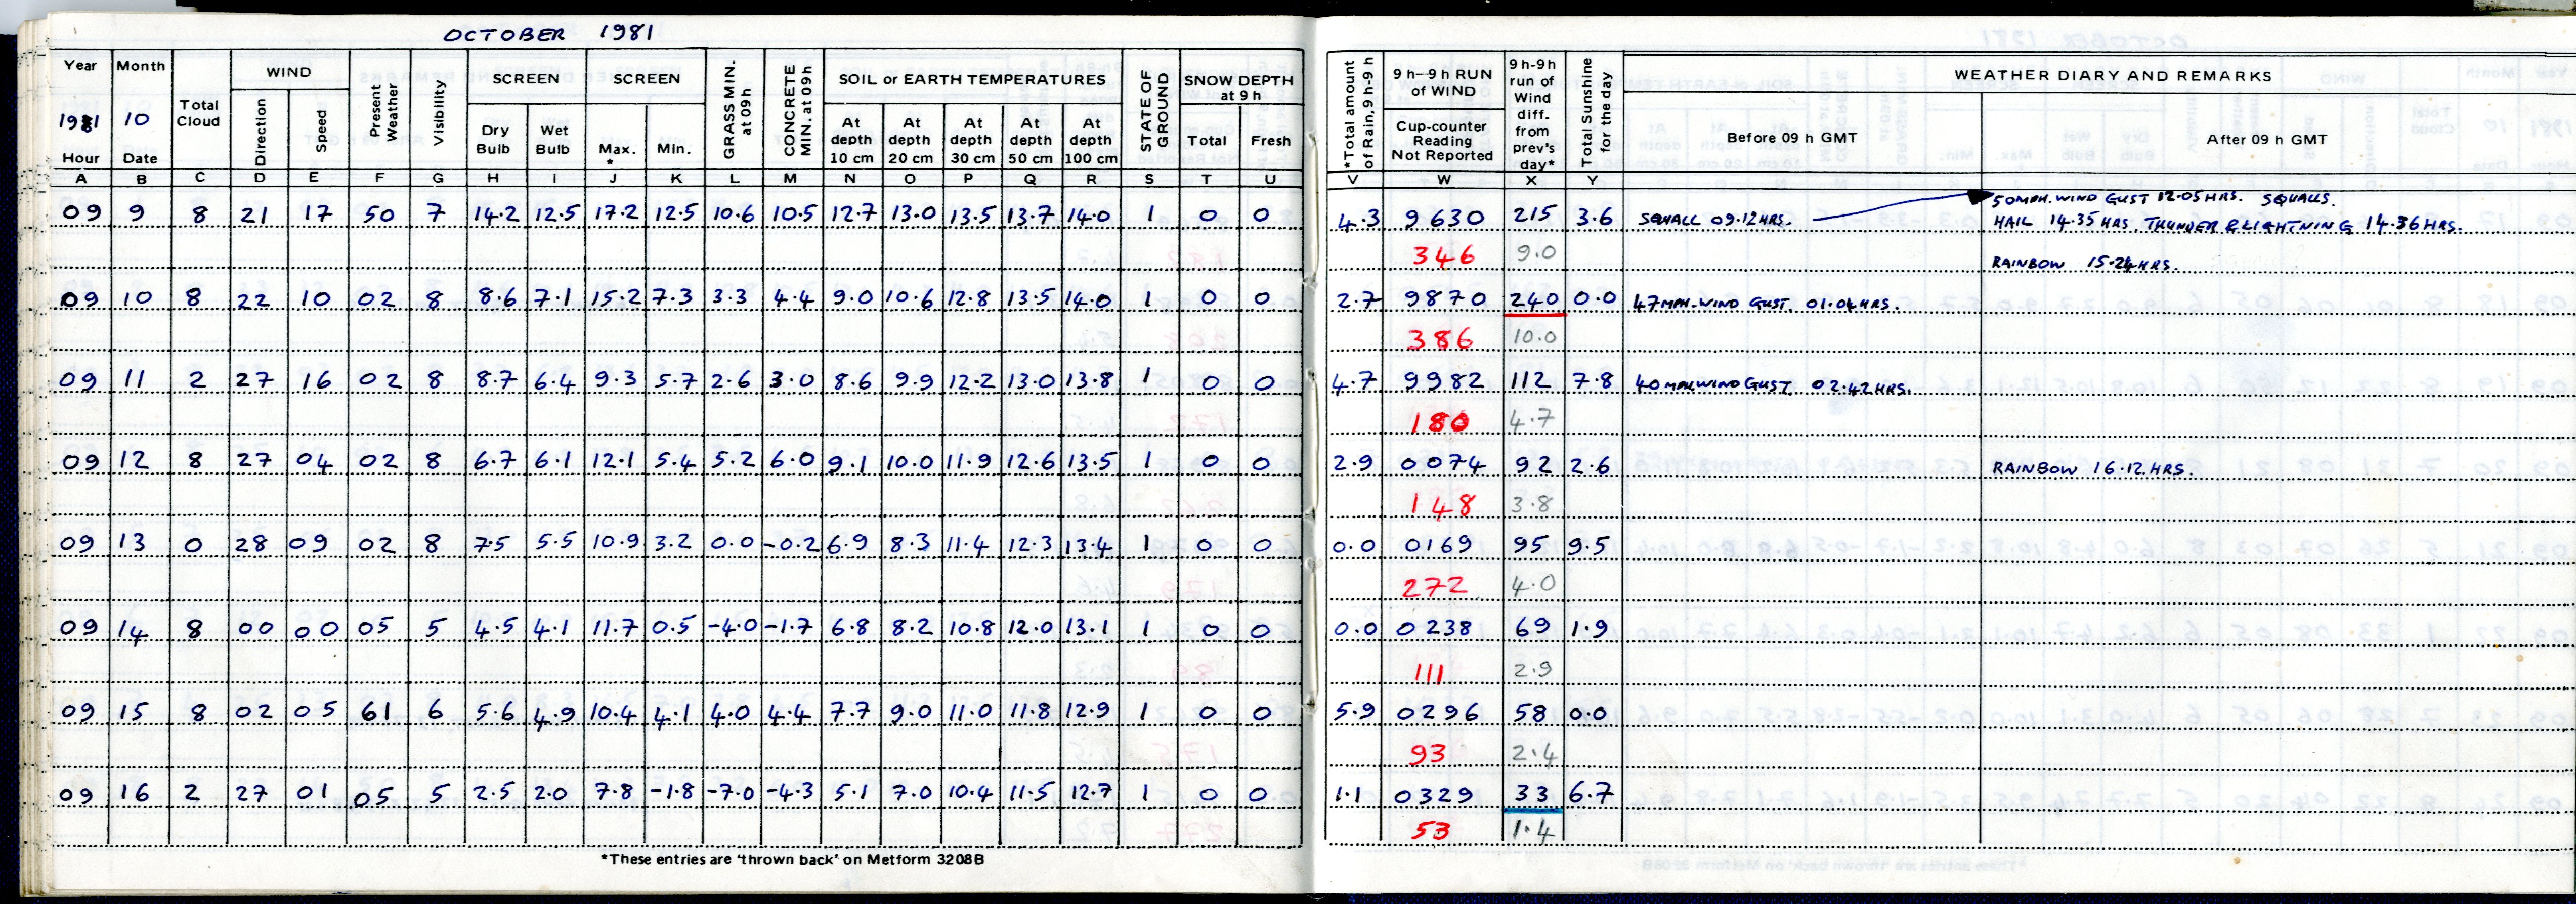 OCTOBER 1981
Year Month Total Cloud WIND Present Weather Visibility SCREEN SCREEN GRASS MIN. at 09h CONCRETE MIN. at 09h SOIL or EARTH TEMPERATURES STATE OF GROUND SNOW DEPTH at 9 h *Total amount of Rain, 9h-9 h 9 h—9 h RUN of WIND 9h-9h run of Wind diff. from prev's day* Total Sunshine for the day WEATHER DIARY AND REMARKS
1981 10 Direction Speed Dry Bulb Wet Bulb Max. * Min. At depth 10 cm At depth 20 cm At depth 30 cm At depth 50 cm At depth 100 cm Total Fresh Cup-counter Reading Not Reported Before 09 h GMT After 09 h GMT
Hour Date
A B C D E F G H I J K L M N O P Q R S T U V W X Y
50MPH.WIND GUST 12.05HRS. SQUALLS.
09 9 8 21 17 50 7 14.2 12.5 17.2 12.5 10.6 10.5 12.7 13.0 13.5 13.7 14.0 1 0 0 4.3 9630 215 3.6 SQUALL 09.12HRS. HAIL 14.35HRS, THUNDER & LIGHTNING 14.36HRS.
346 9.0 RAINBOW 15.24HRS.
09 10 8 22 10 02 8 8.6 7.1 15.2 7.3 3.3 4.4 9.0 10.6 12.8 13.5 14.0 1 0 0 2.7 9870 240 0.0 47MPH.WIND GUST. 01.04HRS.
386 10.0
09 11 2 27 16 02 8 8.7 6.4 9.3 5.7 2.6 3.0 8.6 9.9 12.2 13.0 13.8 1 0 0 4.7 9982 112 7.8 40MPH.WIND GUST. 02.42HRS.
180 4.7
09 12 8 27 04 02 8 6.7 6.1 12.1 5.4 5.2 6.0 9.1 10.0 11.9 12.6 13.5 1 0 0 2.9 0074 92 2.6 RAINBOW 16.12HRS.
148 3.8
09 13 0 28 09 02 8 7.5 5.5 10.9 3.2 0.0 -0.2 6.9 8.3 11.4 12.3 13.4 1 0 0 0.0 0169 95 9.5
272 4.0
09 14 8 00 00 05 5 4.5 4.1 11.7 0.5 -4.0 -1.7 6.8 8.2 10.8 12.0 13.1 1 0 0 0.0 0238 69 1.9
111 2.9
09 15 8 02 05 61 6 5.6 4.9 10.4 4.1 4.0 4.4 7.7 9.0 11.0 11.8 12.9 1 0 0 5.9 0296 58 0.0
93 2.4
09 16 2 27 01 05 5 2.5 2.0 7.8 -1.8 -7.0 -4.3 5.1 7.0 10.4 11.5 12.7 1 0 0 1.1 0329 33 6.7
53 1.4
*These entries are 'thrown back' on Metform 3208B